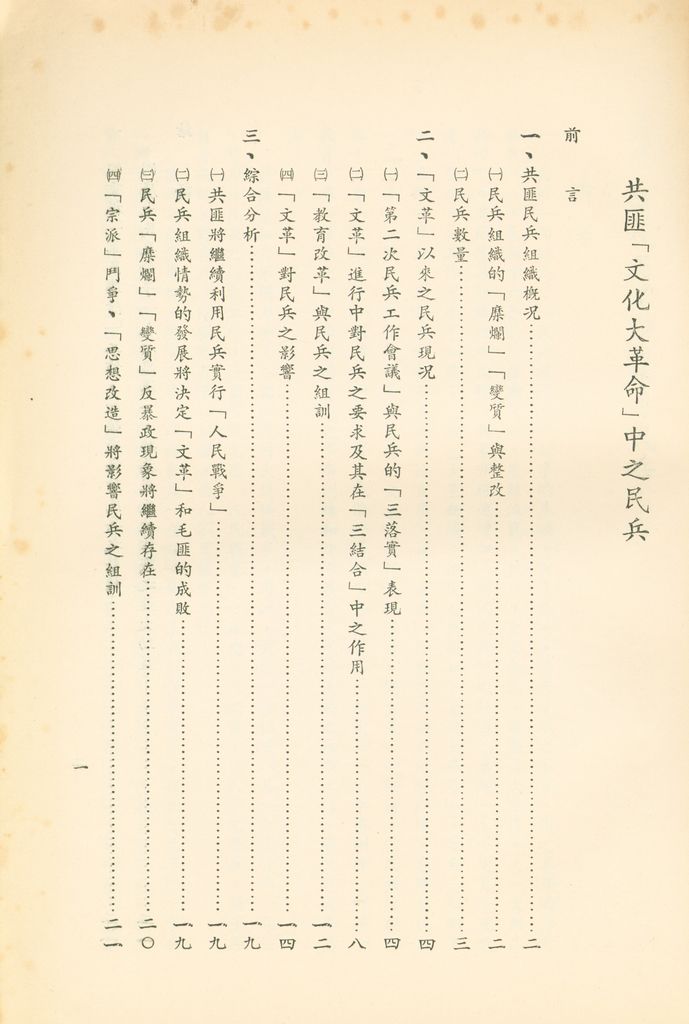 共匪「文化大革命」中之民兵
前言
一、共匪民兵組織概况……二
㈠民兵組織的「糜爛」「變質」與整改……二
㈡民兵數量……三
二、「文革」以來之民兵現况……四
㈠「第二次民兵工作會議」與民兵的「三落實」表現……四
㈡「文革」進行中對民兵之要求及其在「三結合」中之作用……八
㈢「教育改革」與民兵之組訓……一二
㈣「文革」對民兵之影響……一四
三、綜合分析……一九
㈠共匪將繼續利用民兵實行「人民戰爭」……一九
㈡民兵組織情勢的發展將決定「文革」和毛匪的成敗……一九
㈢民兵「糜爛」「變質」反暴政現象將繼續存在……二〇
㈣「宗派」鬥爭、「思想改造」將影響民兵之組訓……二一
一